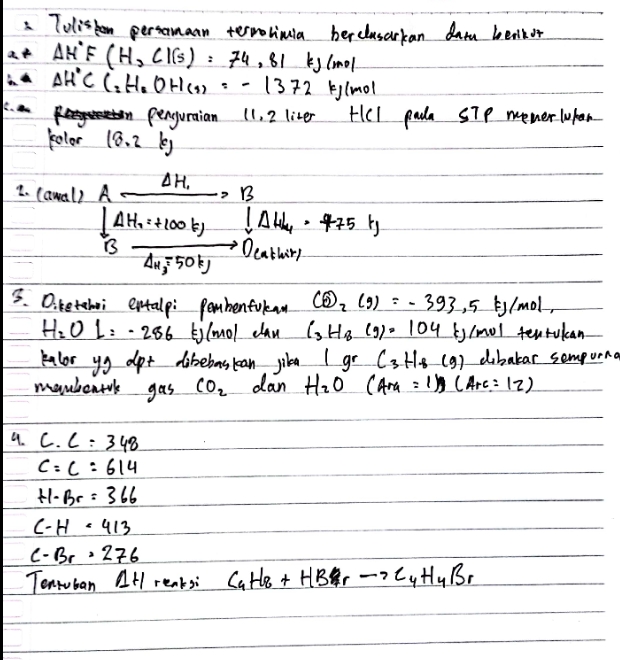 Tuliskan persamaan termokimia berdasarkan data berikut
a. ΔH°F (H, Cl(s) = 74,81 kJ/mol
b. ΔH°C C₂H₅OH(s) = - 1372 kJ/mol
c. penguraian 11,2 liter HCl pada STP memerlukan
kalor 18,2 kJ
2. (awal) A ΔH₁ → B
↓ ΔH₂ = +100 kJ ↓ ΔH₄ = +75 kJ
B ΔH₃ = 50 kJ → D (akhir)
3. Diketahui entalpi pembentukan CO₂ (g) = - 393,5 kJ/mol,
H₂O L = - 286 kJ/mol dan C₃H₈ (g) = 104 kJ/mol tentukan
kalor yg dpt dibebaskan jika 1 gr C₃H₈ (g) dibakar sempurna
membentuk gas CO₂ dan H₂O (Ar = 1) (Arc = 12)
4. C-C = 348
C=C = 614
H-Br = 366
C-H = 413
C-Br = 276
Tentukan ΔH reaksi C₄H₈ + HBr → C₄H₄Br